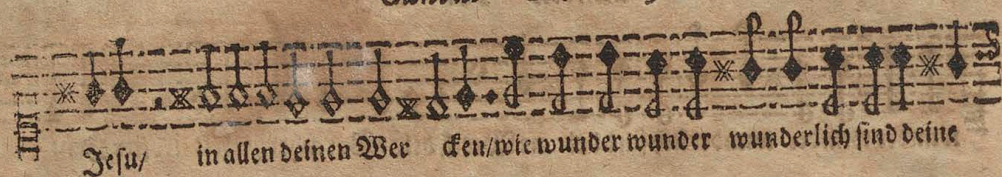 Jesu/ in allen deinen Wer cken/wie wunder wunder wunderlich sind deine